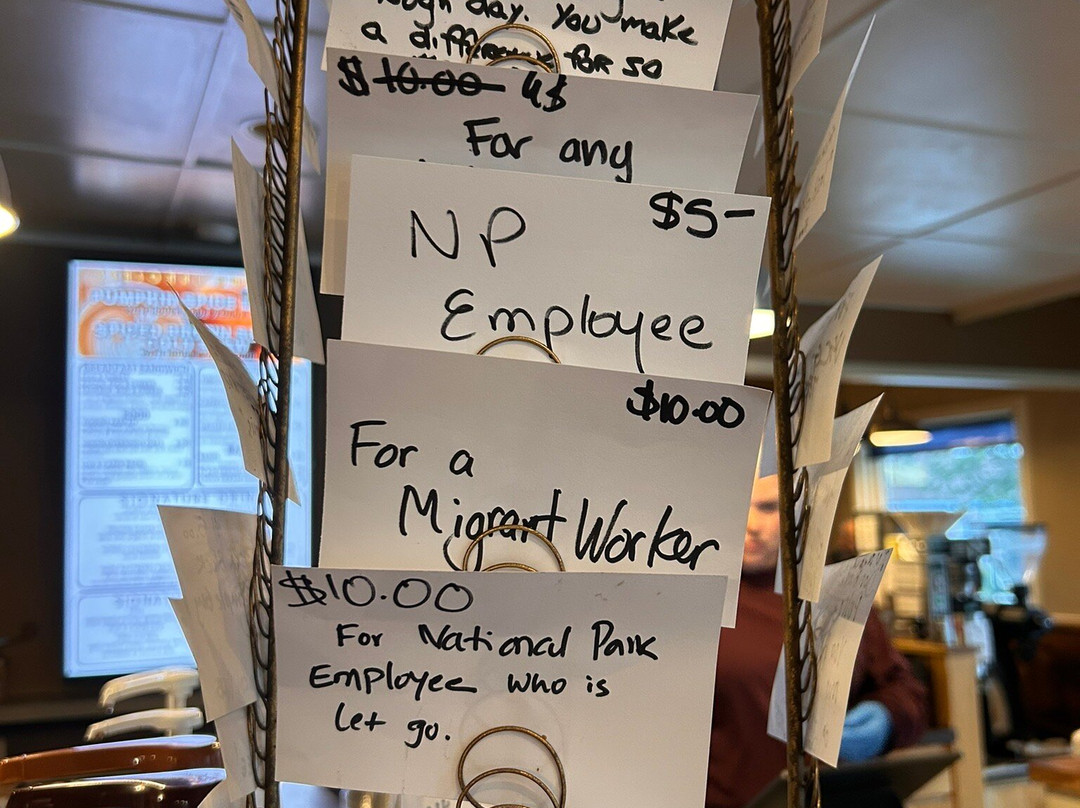 day. You make
a difference for so
$ 10.00 4$
For any
$5-
NP
Employee
$10.00
For a
Migrant Worker
$10.00
For National Park
Employee who is
let go.